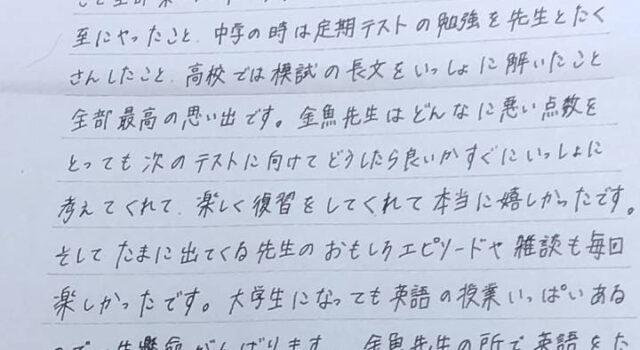 至にやったこと、中学の時は定期テストの勉強を先生とたく
さんしたこと、高校では模試の長文をいっしょに解いたこと
全部最高の思い出です。金魚先生はどんなに悪い点数を
とっても次のテストに向けてどうしたら良いかすぐにいっしょに
考えてくれて、楽しく復習をしてくれて本当に嬉しかったです。
そしてたまに出てくる先生のおもしろエピソードや雑談も毎回
楽しかったです。大学生になっても英語の授業いっぱいある
ので一生懸命がんばります。金魚先生の所で英語をた